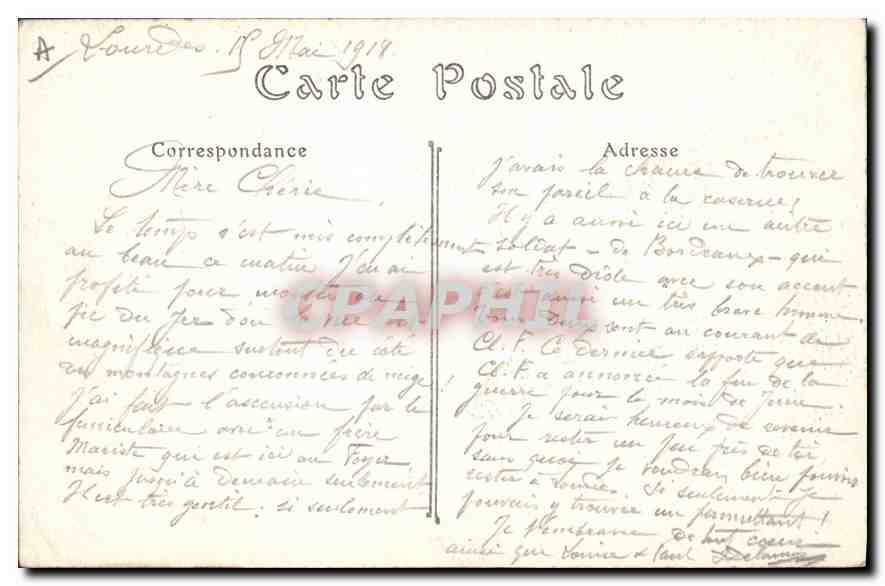 A
Lourdes. 15 Mai 1918.
Carte Postale
Correspondance
Mère Chérie,
Le temps s'est mis complètement
au beau ce matin J'en ai
profité pour monter au
pic du Jer d'où la vue est
magnifique surtout du côté
des montagnes couronnées de neige!
J'ai fait l'ascension par le
funiculaire avec un frère
Mariste qui est ici au Foyer
mais jusqu'à demain seulement
Il est très gentil; si seulement
Adresse
j'avais la chance de trouver
son pareil à la caserne!
Il y a aussi ici un autre
soldat - de Bordeaux - qui
est très drôle avec son accent
est aussi un très brave homme.
Tous deux sont au courant de
Cl. F. Ce dernier rapporte que
Cl. F. a annoncé la fin de la
guerre pour le mois de Juin.
Je serai heureux de revenir
pour rester un peu près de toi
sans quoi je voudrais bien pouvoir
rester à Lourdes. Si seulement je
pouvais y trouver un permuttant!
Je t'embrasse de tout coeur
ainsi que Louise & Paul
CPAPHIL